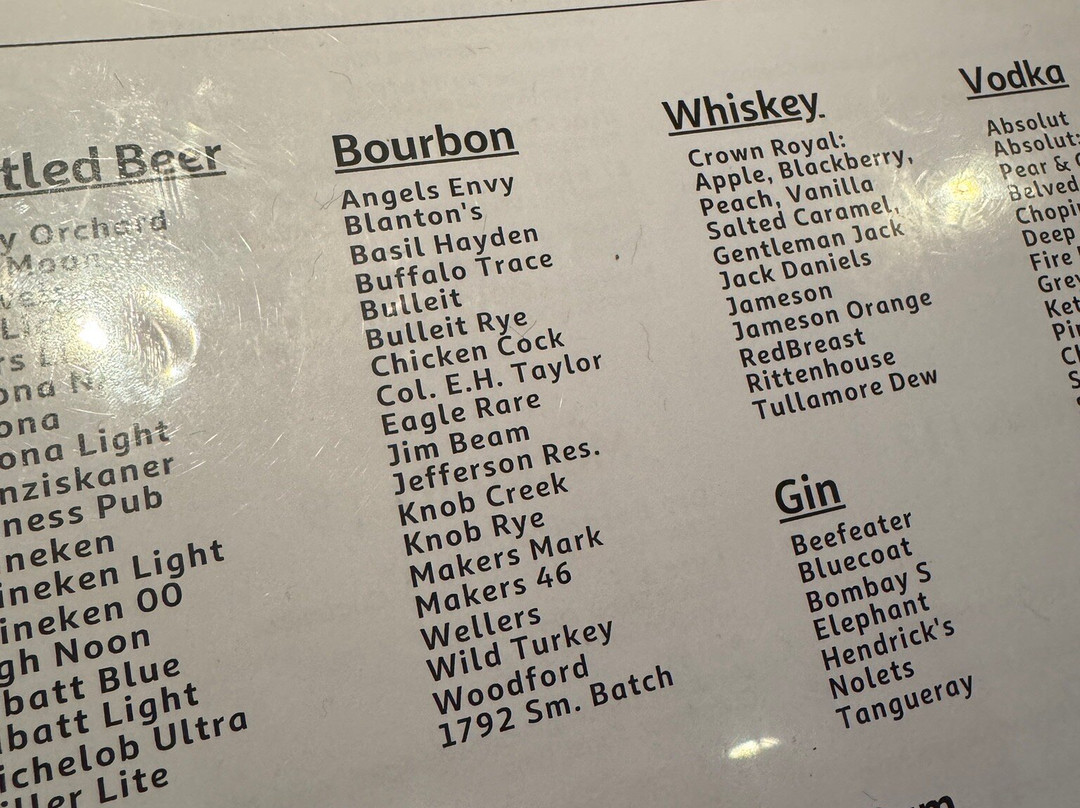 tled Beer
y Orchard
Moon
ona
ona Light
nziskaner
ness Pub
neken
ineken Light
ineken 00
gh Noon
batt Blue
batt Light
ichelob Ultra
iller Lite
Bourbon
Angels Envy
Blanton's
Basil Hayden
Buffalo Trace
Bulleit
Bulleit Rye
Chicken Cock
Col. E.H. Taylor
Eagle Rare
Jim Beam
Jefferson Res.
Knob Creek
Knob Rye
Makers Mark
Makers 46
Wellers
Wild Turkey
Woodford
1792 Sm. Batch
Whiskey
Crown Royal:
Apple, Blackberry,
Peach, Vanilla
Salted Caramel,
Gentleman Jack
Jack Daniels
Jameson
Jameson Orange
RedBreast
Rittenhouse
Tullamore Dew
Gin
Beefeater
Bluecoat
Bombay S
Elephant
Hendrick's
Nolets
Tangueray
Vodka
Absolut
Absolut:
Pear &
Belved
Chopin
Deep
Fire
Grey
Ket
Pin